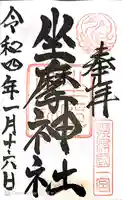 奉拝
坐摩神社
令和四年一月十六日